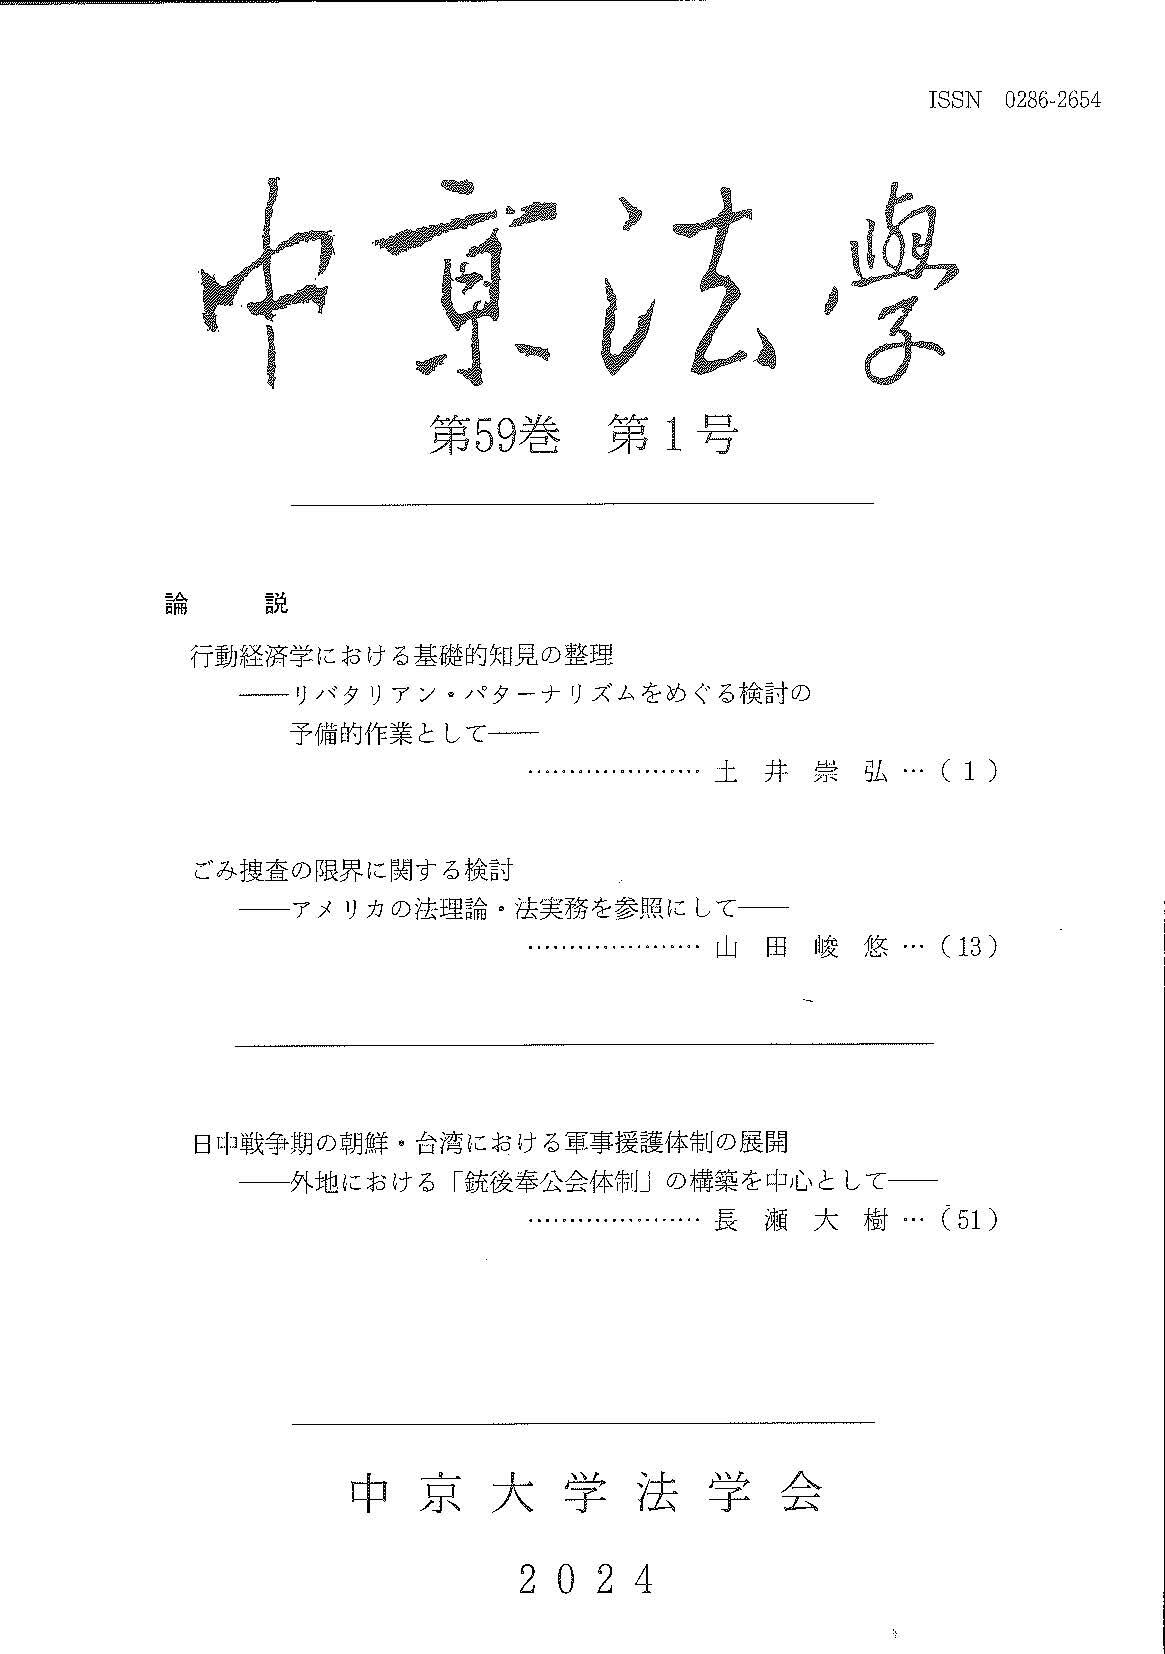 ISSN 0286-2654
中京法學
第59巻 第1号
論 説
行動経済学における基礎的知見の整理
――リバタリアン・パターナリズムをめぐる検討の
予備的作業として――
………………… 土 井 崇 弘 …( 1 )
ごみ捜査の限界に関する検討
――アメリカの法理論・法実務を参照にして――
………………… 山 田 峻 悠 …(13)
日中戦争期の朝鮮・台湾における軍事援護体制の展開
――外地における「銃後奉公会体制」の構築を中心として――
………………… 長 瀬 大 樹 …(51)
中京大学法学会
2024